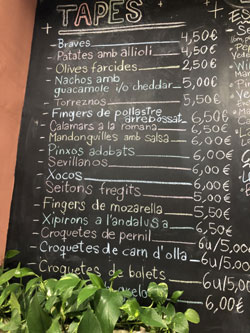 TAPES
- Braves 4,50€
- Patates amb allioli 4,50€
- Olives farcides 2,50€
- Nachos amb
guacamole i/o cheddar 5,00€
- Torreznos 5,50€
- Fingers de pollastre
arrebossat 6,50€
- Calamars a la romana 6,50€
- Mandonguilles amb salsa 6,00€
- Pinxos adobats 6,00€
- Sevillanos 6,00€
- Xocos 6,00€
- Seitons fregits 5,00€
- Fingers de mozarella 5,50€
- Xipirons a l'andalusa 6,50€
- Croquetes de pernil 6u/5,00
- Croquetes de carn d'olla 6u/5.00
- Croquetes de bolets 6u/5,00
6,00€